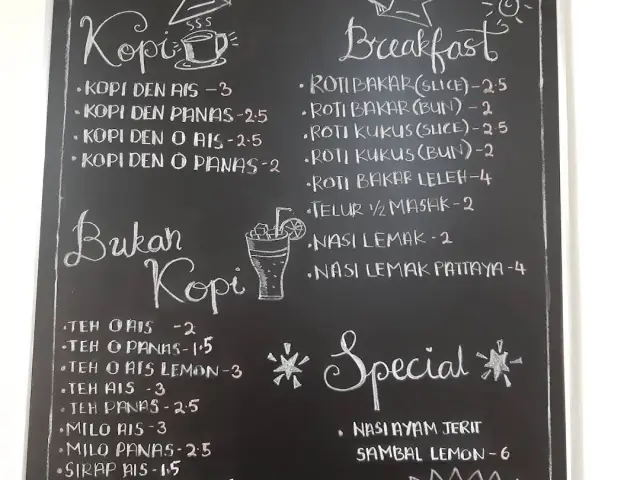 Kopi
• KOPI DEN AIS - 3
• KOPI DEN PANAS - 2.5
• KOPI DEN O AIS - 2.5
• KOPI DEN O PANAS - 2
Bukan
Kopi
• TEH O AIS - 2
• TEH O PANAS - 1.5
• TEH O AIS LEMON - 3
• TEH AIS - 3
• TEH PANAS - 2.5
• MILO AIS - 3
• MILO PANAS - 2.5
• SIRAP AIS - 1.5
Breakfast
• ROTI BAKAR (SLICE) - 2.5
• ROTI BAKAR (BUN) - 2
• ROTI KUKUS (SLICE) - 2.5
• ROTI KUKUS (BUN) - 2
• ROTI BAKAR LELEH - 4
• TELUR 1/2 MASAK - 2
• NASI LEMAK - 2
• NASI LEMAK PATTAYA - 4
Special
• NASI AYAM JERIT
SAMBAL LEMON - 6